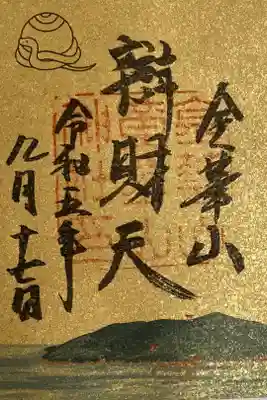 金華山
辨財天
令和五年
九月十七日